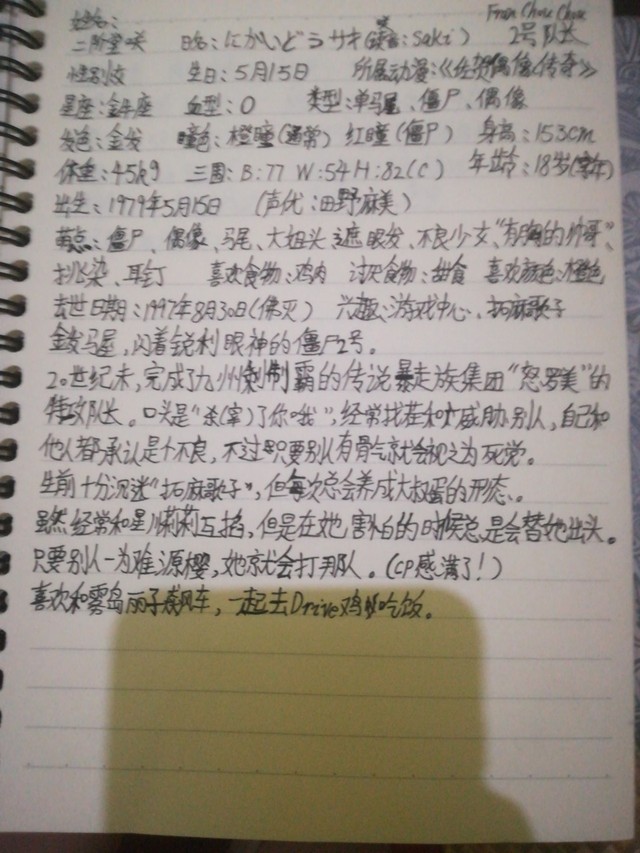 姓名：
Fran Chou Chou
二阶堂咲 日名：にかいどうサキ（读音：Saki） 2号 队长
性别：女 生日：5月15日 所属动漫：《佐贺偶像传奇》
星座：金牛座 血型：O 类型：单马尾、僵尸、偶像
发色：金发 瞳色：橙瞳（通常） 红瞳（僵尸） 身高：153cm
体重：45kg 三围：B：77 W：54 H：82（C） 年龄：18岁（享年）
出生：1979年5月15日 （声优：田野麻美）
萌点：僵尸、偶像、马尾、大姐头、遮眼发、不良少女、“有胸的帅哥”、
挑染、耳钉 喜欢食物：鸡肉 讨厌食物：甜食 喜欢颜色：橙色
去世日期：1997年8月30日（佛灭） 兴趣：游戏中心、拓麻歌子
金发马尾，闪着锐利眼神的僵尸2号。
20世纪末，完成了九州制霸的传说暴走族集团“怒罗美”的
特攻队长。口头是“杀（宰）了你哦”，经常找茬和威胁别人，自己和
他人都承认是个不良，不过只要别人有骨气就会视之为死党。
生前十分沉迷“拓麻歌子”，但每次总会养成大叔蛋的形态。
虽然经常和星川莉莉互掐，但是在她害怕的时候总是会替她出头。
只要别人一为难源樱，她就会打那人。（CP感满了！）
喜欢和雾岛丽子飙风车，一起去Drive鸡吃饭。